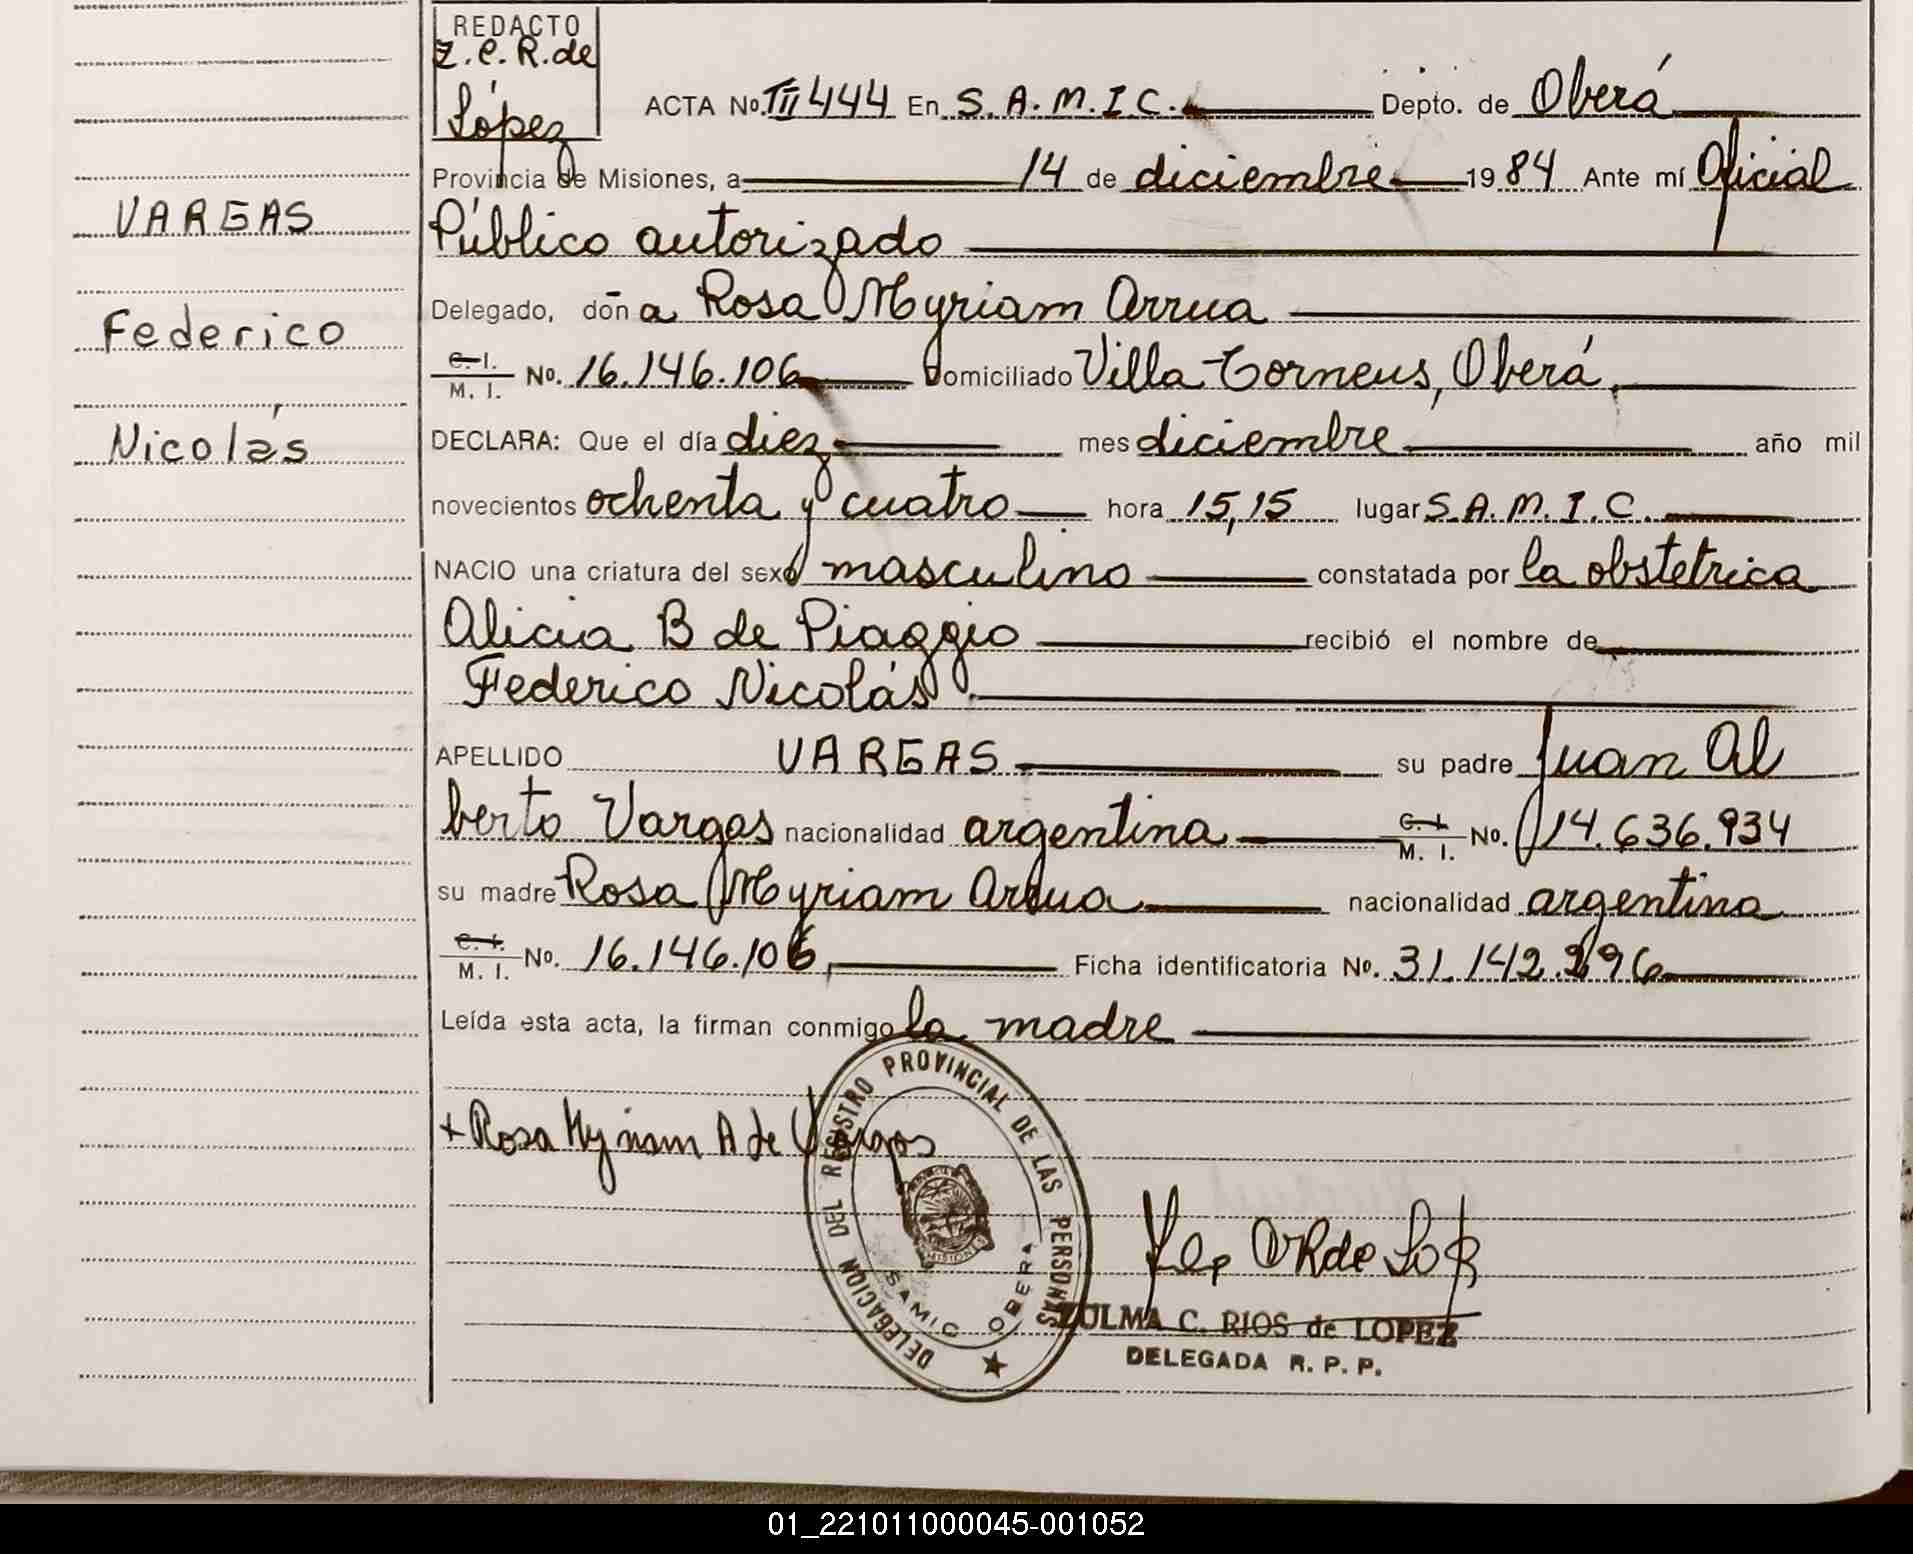 REDACTO
Z.C.R. de
López
ACTA No. III 444 En S.A.M.I.C. Depto. de Oberá
Provincia de Misiones, a 14 de diciembre 1984 Ante mí Oficial
Público autorizado
Delegado, don a Rosa Myriam Arrua
C. I. M. I. No. 16.146.106 Domiciliado Villa Torneus, Oberá,
DECLARA: Que el día diez mes diciembre año mil
novecientos ochenta y cuatro hora 15,15 lugar S.A.M.I.C.
NACIO una criatura del sexo masculino constatada por la obstetrica
Alicia B de Piaggio recibió el nombre de
Federico Nicolás
APELLIDO VARGAS su padre Juan Al
berto Vargas nacionalidad argentina C. I. M. I. No. 14.636.934
su madre Rosa Myriam Arrua nacionalidad argentina
C. I. M. I. No. 16.146.106, Ficha identificatoria No. 31.142.296
Leída esta acta, la firman conmigo la madre
+ Rosa Myriam A de Vargas
DELEGACION DEL REGISTRO PROVINCIAL DE LAS PERSONAS
MISIONES
SAMIC OBERA
ZULMA C. RIOS de LOPEZ
DELEGADA R. P. P.
VARGAS
Federico
Nicolás
01_221011000045-001052